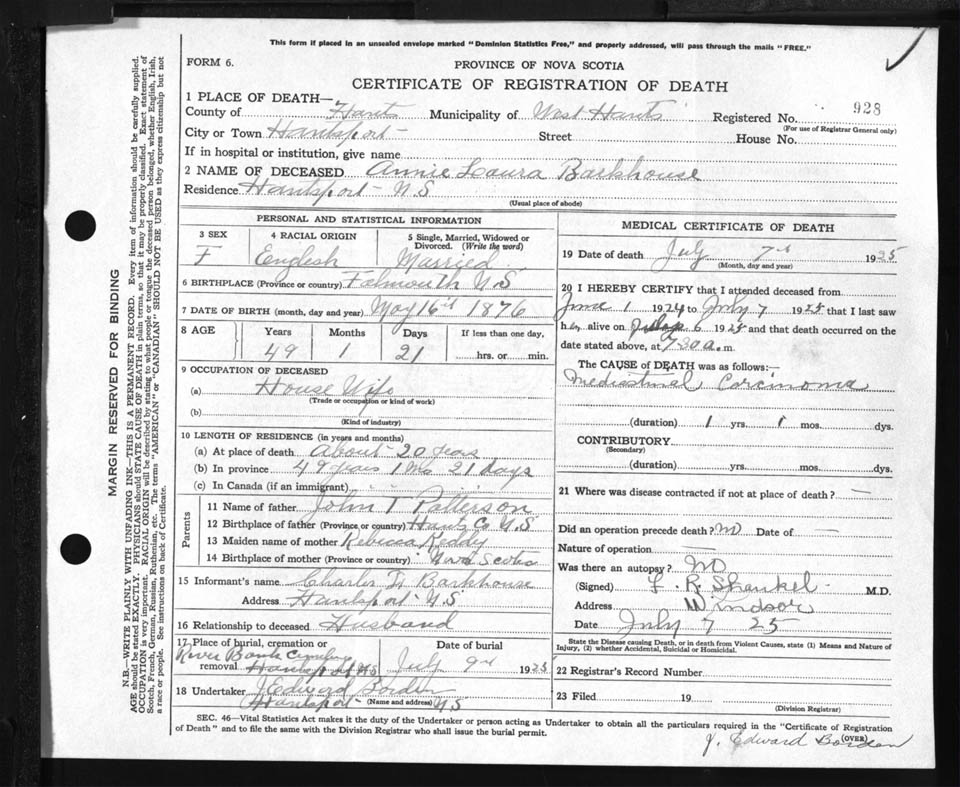 This form if placed in an unsealed envelope marked "Dominion Statistics Free," and properly addressed, will pass through the mails "FREE."
FORM 6.
PROVINCE OF NOVA SCOTIA
CERTIFICATE OF REGISTRATION OF DEATH
1 PLACE OF DEATH—
County of Hants Municipality of West Hants Registered No. 928
(For use of Registrar General only)
City or Town Hantsport Street House No.
If in hospital or institution, give name
2 NAME OF DECEASED Annie Laura Barkhouse
Residence Hantsport N.S
(Usual place of abode)
PERSONAL AND STATISTICAL INFORMATION
3 SEX 4 RACIAL ORIGIN 5 Single, Married, Widowed or Divorced. (Write the word)
F English Married
6 BIRTHPLACE (Province or country) Falmouth N.S
7 DATE OF BIRTH (month, day and year) May 16th 1876
8 AGE Years Months Days If less than one day,
49 1 21 hrs. or min.
9 OCCUPATION OF DECEASED
(a) House Wife
(Trade or occupation or kind of work)
(b)
(Kind of industry)
10 LENGTH OF RESIDENCE (in years and months)
(a) At place of death About 20 years
(b) In province 49 years 1 Mo 21 days
(c) In Canada (if an immigrant)
Parents
11 Name of father John T Patterson
12 Birthplace of father (Province or country) Hants Co N.S
13 Maiden name of mother Rebecca Reddy
14 Birthplace of mother (Province or country) Nova Scotia
15 Informant's name Charles Barkhouse
Address Hantsport N.S
16 Relationship to deceased Husband
17 Place of burial, cremation or removal Date of burial
River Bank Cemetery
Hantsport NS July 9th 1925
18 Undertaker J Edward Borden
Hantsport (Name and address) N.S
MEDICAL CERTIFICATE OF DEATH
19 Date of death July 7th 1925
(Month, day and year)
20 I HEREBY CERTIFY that I attended deceased from
June 1 1924 to July 7 1925 that I last saw
her alive on July 6 1925 and that death occurred on
date stated above, at 7-30 a. m.
The CAUSE of DEATH was as follows:—
Mediastinal Carcinoma
(duration) 1 yrs. 1 mos. dys.
CONTRIBUTORY
(Secondary)
(duration) yrs. mos. dys.
21 Where was disease contracted if not at place of death? —
Did an operation precede death? No Date of —
Nature of operation —
Was there an autopsy? No
(Signed) F. R. Shankel M.D.
Address Windsor
Date July 7 25
State the Disease causing Death, or in death from Violent Causes, state (1) Means and Nature of Injury, (2) whether Accidental, Suicidal or Homicidal.
22 Registrar's Record Number
23 Filed 19
(Division Registrar)
SEC. 46—Vital Statistics Act makes it the duty of the Undertaker or person acting as Undertaker to obtain all the particulars required in the "Certificate of Registration
of Death" and to file the same with the Division Registrar who shall issue the burial permit.
(OVER)
J. Edward Borden
MARGIN RESERVED FOR BINDING
N.B.—WRITE PLAINLY WITH UNFADING INK—THIS IS A PERMANENT RECORD. Every item of information should be carefully supplied.
AGE should be stated EXACTLY. PHYSICIANS should STATE CAUSE OF DEATH in plain terms, so that it may be properly classified. Exact statement of
OCCUPATION is very important. RACIAL ORIGIN will be described by stating to what people or tongue the deceased person belonged, whether English, Irish,
Scotch, French, German, Russian, Ruthenian, etc. The terms "AMERICAN" or "CANADIAN" SHOULD NOT BE USED as they express citizenship but not
a race or people. See instructions on back of Certificate.